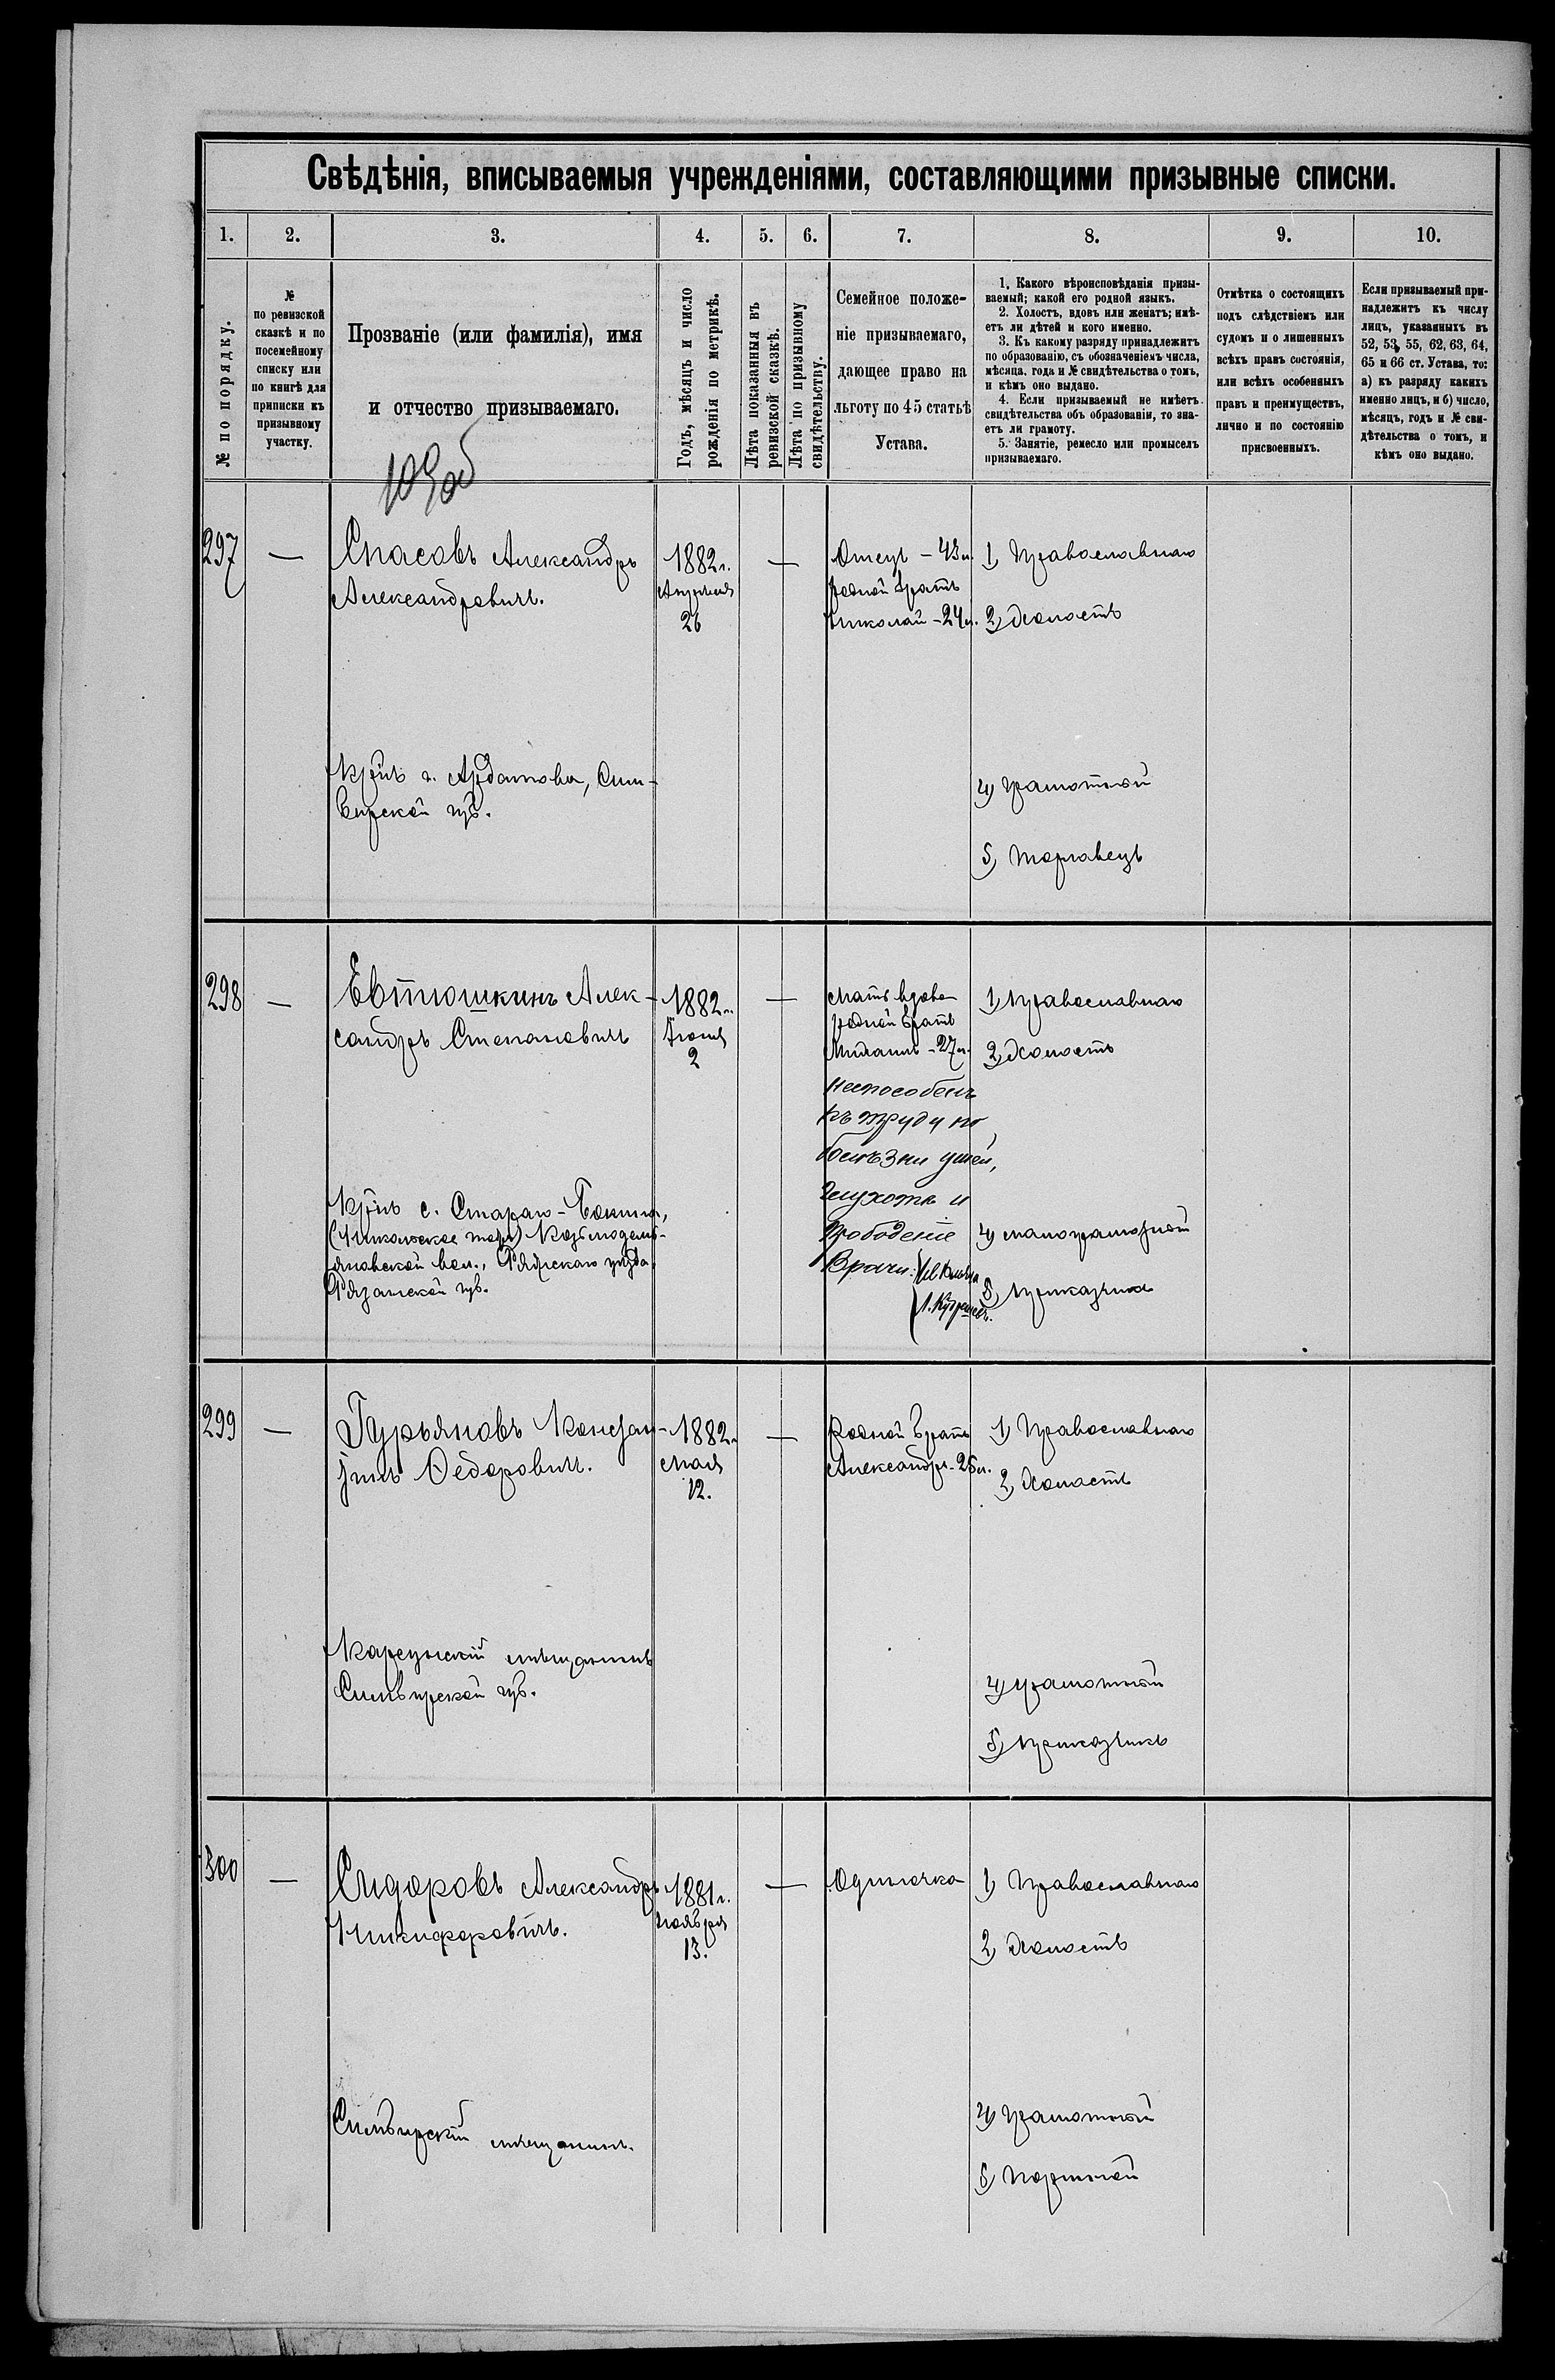 Свѣдѣнія, вписываемыя учрежденіями, составляющими призывные списки.
1. 2. 3. 4. 5. 6. 7. 8. 9. 10.
№ по порядку.
№
по ревизской
сказкѣ и по
посемейному
списку или
по книгѣ для
приписки къ
призывному
участку.
Прозваніе (или фамилія), имя
и отчество призываемаго.
Годъ, мѣсяцъ и число
рожденія по метрикѣ.
Лѣта показанныя въ
ревизской сказкѣ.
Лѣта по призывному
свидѣтельству.
Семейное положе-
ніе призываемаго,
дающее право на
льготу по 45 статьѣ
Устава.
1. Какого вѣроисповѣданія призы-
ваемый; какой его родной языкъ.
2. Холостъ, вдовъ или женатъ; имѣ-
етъ ли дѣтей и кого именно.
3. Къ какому разряду принадлежитъ
по образованію, съ обозначеніемъ числа,
мѣсяца, года и № свидѣтельства о томъ,
и кѣмъ оно выдано.
4. Если призываемый не имѣетъ
свидѣтельства объ образованіи, то зна-
етъ ли грамоту.
5. Занятіе, ремесло или промыселъ
призываемаго.
Отмѣтка о состоящихъ
подъ слѣдствіемъ или
судомъ и о лишенныхъ
всѣхъ правъ состоянія,
или всѣхъ особенныхъ
правъ и преимуществъ,
лично и по состоянію
присвоенныхъ.
Если призываемый при-
надлежитъ къ числу
лицъ, указанныхъ въ
52, 53, 55, 62, 63, 64,
65 и 66 ст. Устава, то:
а) къ разряду какихъ
именно лицъ, и б) число,
мѣсяцъ, годъ и № сви-
дѣтельства о томъ, и
кѣмъ оно выдано.
297 —
Спасовъ Александръ
Александровичъ.
1882 г.
Апрѣля
26
—
Отецъ - 43 л.
родной братъ
Николай - 24 л.
1) Православнаго
2) Холостъ
Кр-нъ г. Ардатова, Сим-
бирской губ.
4) Грамотной
5) Торговецъ
298 —
Евтюшкинъ Алек-
сандръ Степановичъ
1882 г.
Іюня
2
—
Мать вдова
родной братъ
Михаилъ - 27 л.
неспособенъ
къ труду по
болѣзни ушей,
глухота и
прободеніе
Врачи:
1) Православнаго
2) Холостъ
Кр-нъ с. Стараго-
Козьмодемь-
яновской вол., Ряжскаго уѣзда,
Рязанской губ.
4) малограмотной
5) Приказчикъ
299 —
Гурьяновъ Констан-
тинъ Федоровичъ.
1882 г.
Мая
12.
—
Родной братъ
Александръ - 25 л.
1) Православнаго
2) Холостъ
Карсунскій мѣщанинъ
Симбирской губ.
4) грамотной
5) Приказчикъ
300 —
Сидоровъ Александръ
Никифоровичъ.
1881 г.
Ноября
13.
—
Одиночка
1) Православнаго
2) Холостъ
Симбирскій мѣщанинъ.
4) Грамотной
5) Портной